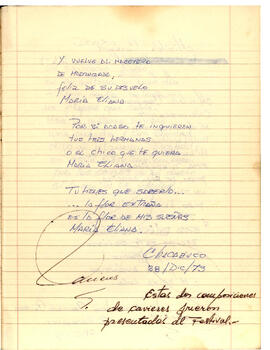 Y VUELVE AL MAGISTERIO
DE MADRUGADA,
FELIZ DE SU DESVELO
MARIA ELIANA
POR SI ACASO TE INQUIEREN
TUS MIS HERMANAS
O EL CHICO QUE TE QUIERA
MARIA ELIANA
TU TIENES QUE SABERLO...
... LA FLOR EXTRAÑA
ES LA FLOR DE MIS SUEÑOS
MARIA ELIANA.
CHACABUCO
28/DIC/73
Estas dos composiciones
de caviares fueron
presentados al Festival.-